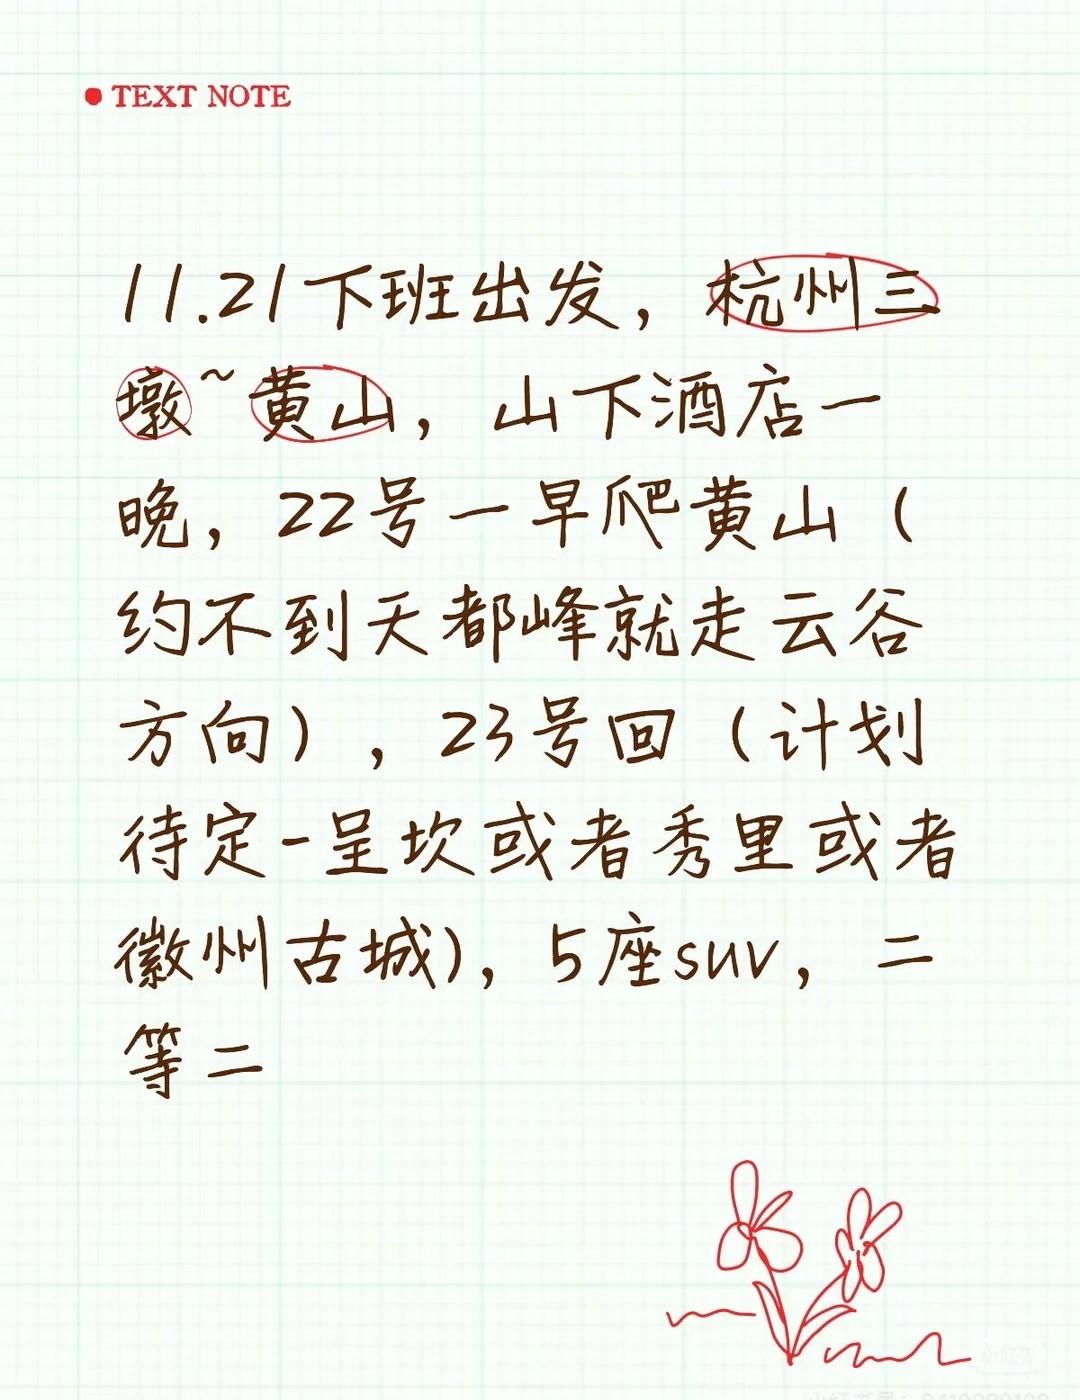 TEXT NOTE
11.21下班出发，杭州三
墩~黄山，山下酒店一
晚，22号一早爬黄山（
约不到天都峰就走云谷
方向），23号回（计划
待定-呈坎或者秀里或者
徽州古城)，5座suv，二
等二